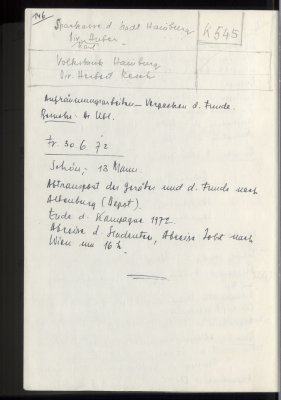 146
Sparkasse d. Stadt Hainburg
Dir. Huber
Karl
K 545
Volksbank Hainburg
Dir. Herbert
Aufräumungsarbeiten – Verpacken d. Funde.
Besuche: Dr. Ubl.
Fr. 30 6. 72
Schön; 13 Mann.
Abtransport der Geräte und d. Funde nach
Altenburg (Depot).
Ende d. Kampagne 1972.
Abreise d. Studenten, Abreise Jobst nach
Wien um 16 h.